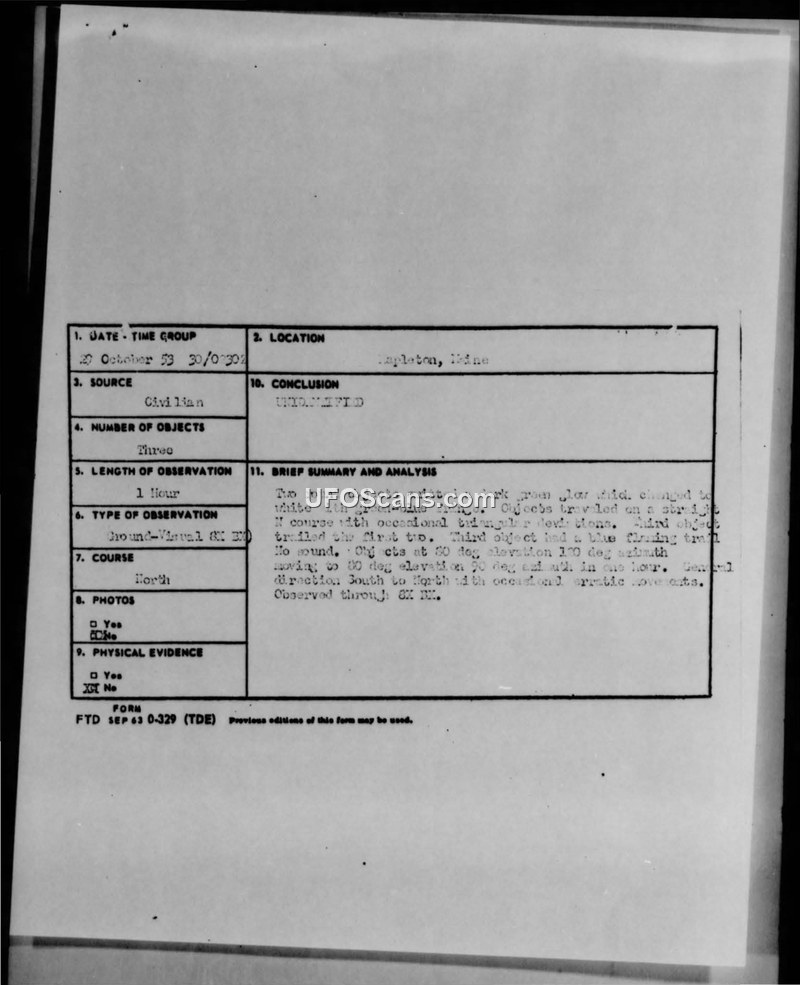 1. DATE - TIME GROUP
October 53
2. LOCATION
3. SOURCE
Civilian
10. CONCLUSION
4. NUMBER OF OBJECTS
Three
5. LENGTH OF OBSERVATION
1 Hour
11. BRIEF SUMMARY AND ANALYSIS
Two dark green glow which changed to
white with green-blue fringe. Objects traveled on a straight
N course with occasional triangular deviations. Third object
trailed the first two. Third object had a blue flaming trail
No sound. Objects at deg elevation deg azimuth
moving to 80 deg elevation deg azimuth in one hour. General
direction South to North with occasional erratic movements.
Observed through 8X BX.
UFOScans.com
6. TYPE OF OBSERVATION
Ground-Visual 8X BX)
7. COURSE
North
8. PHOTOS
□ Yes
□ No
9. PHYSICAL EVIDENCE
□ Yes
XX No
FORM
FTD SEP 63 0-329 (TDE) Previous editions of this form may be used.